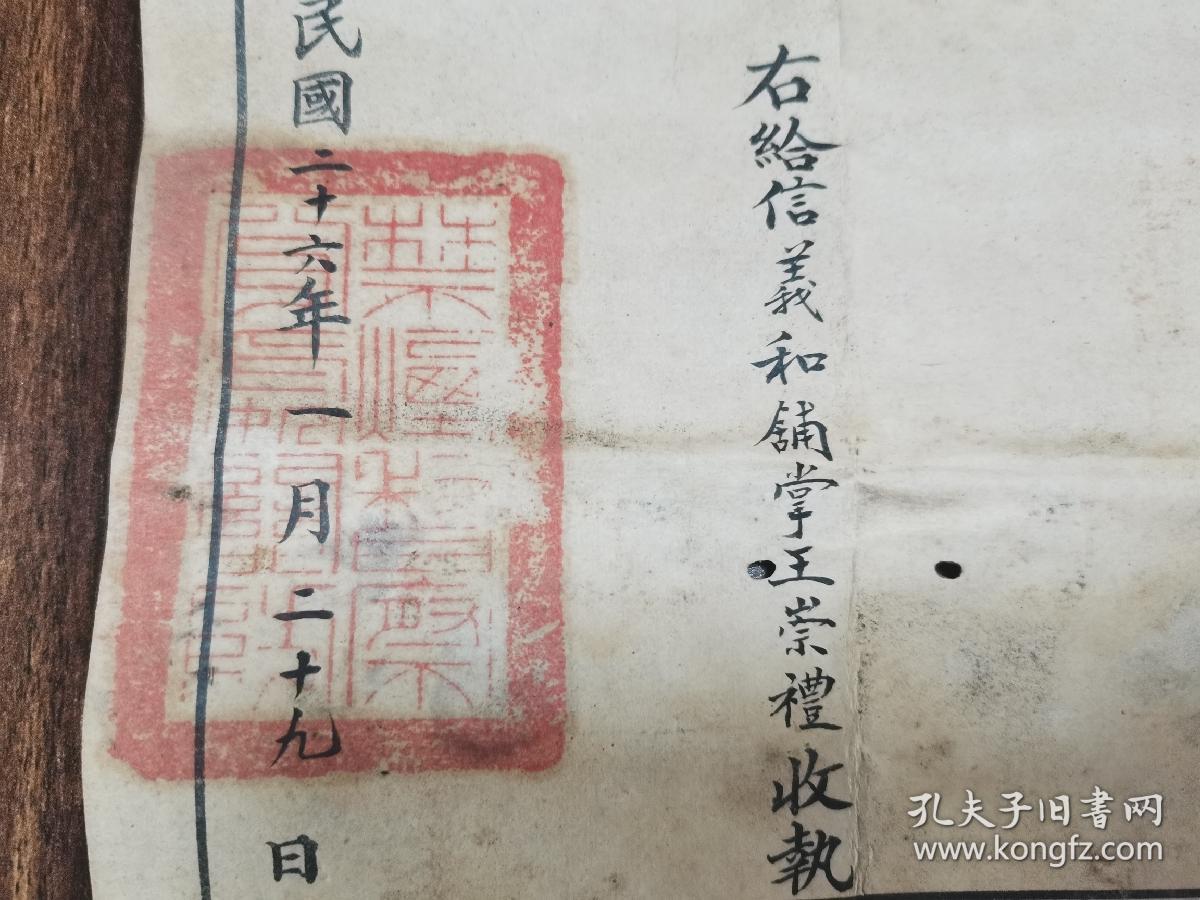 右給信義和舖掌王崇禮收執
民國二十六年一月二十九日
孔夫子旧書网
www.kongfz.com